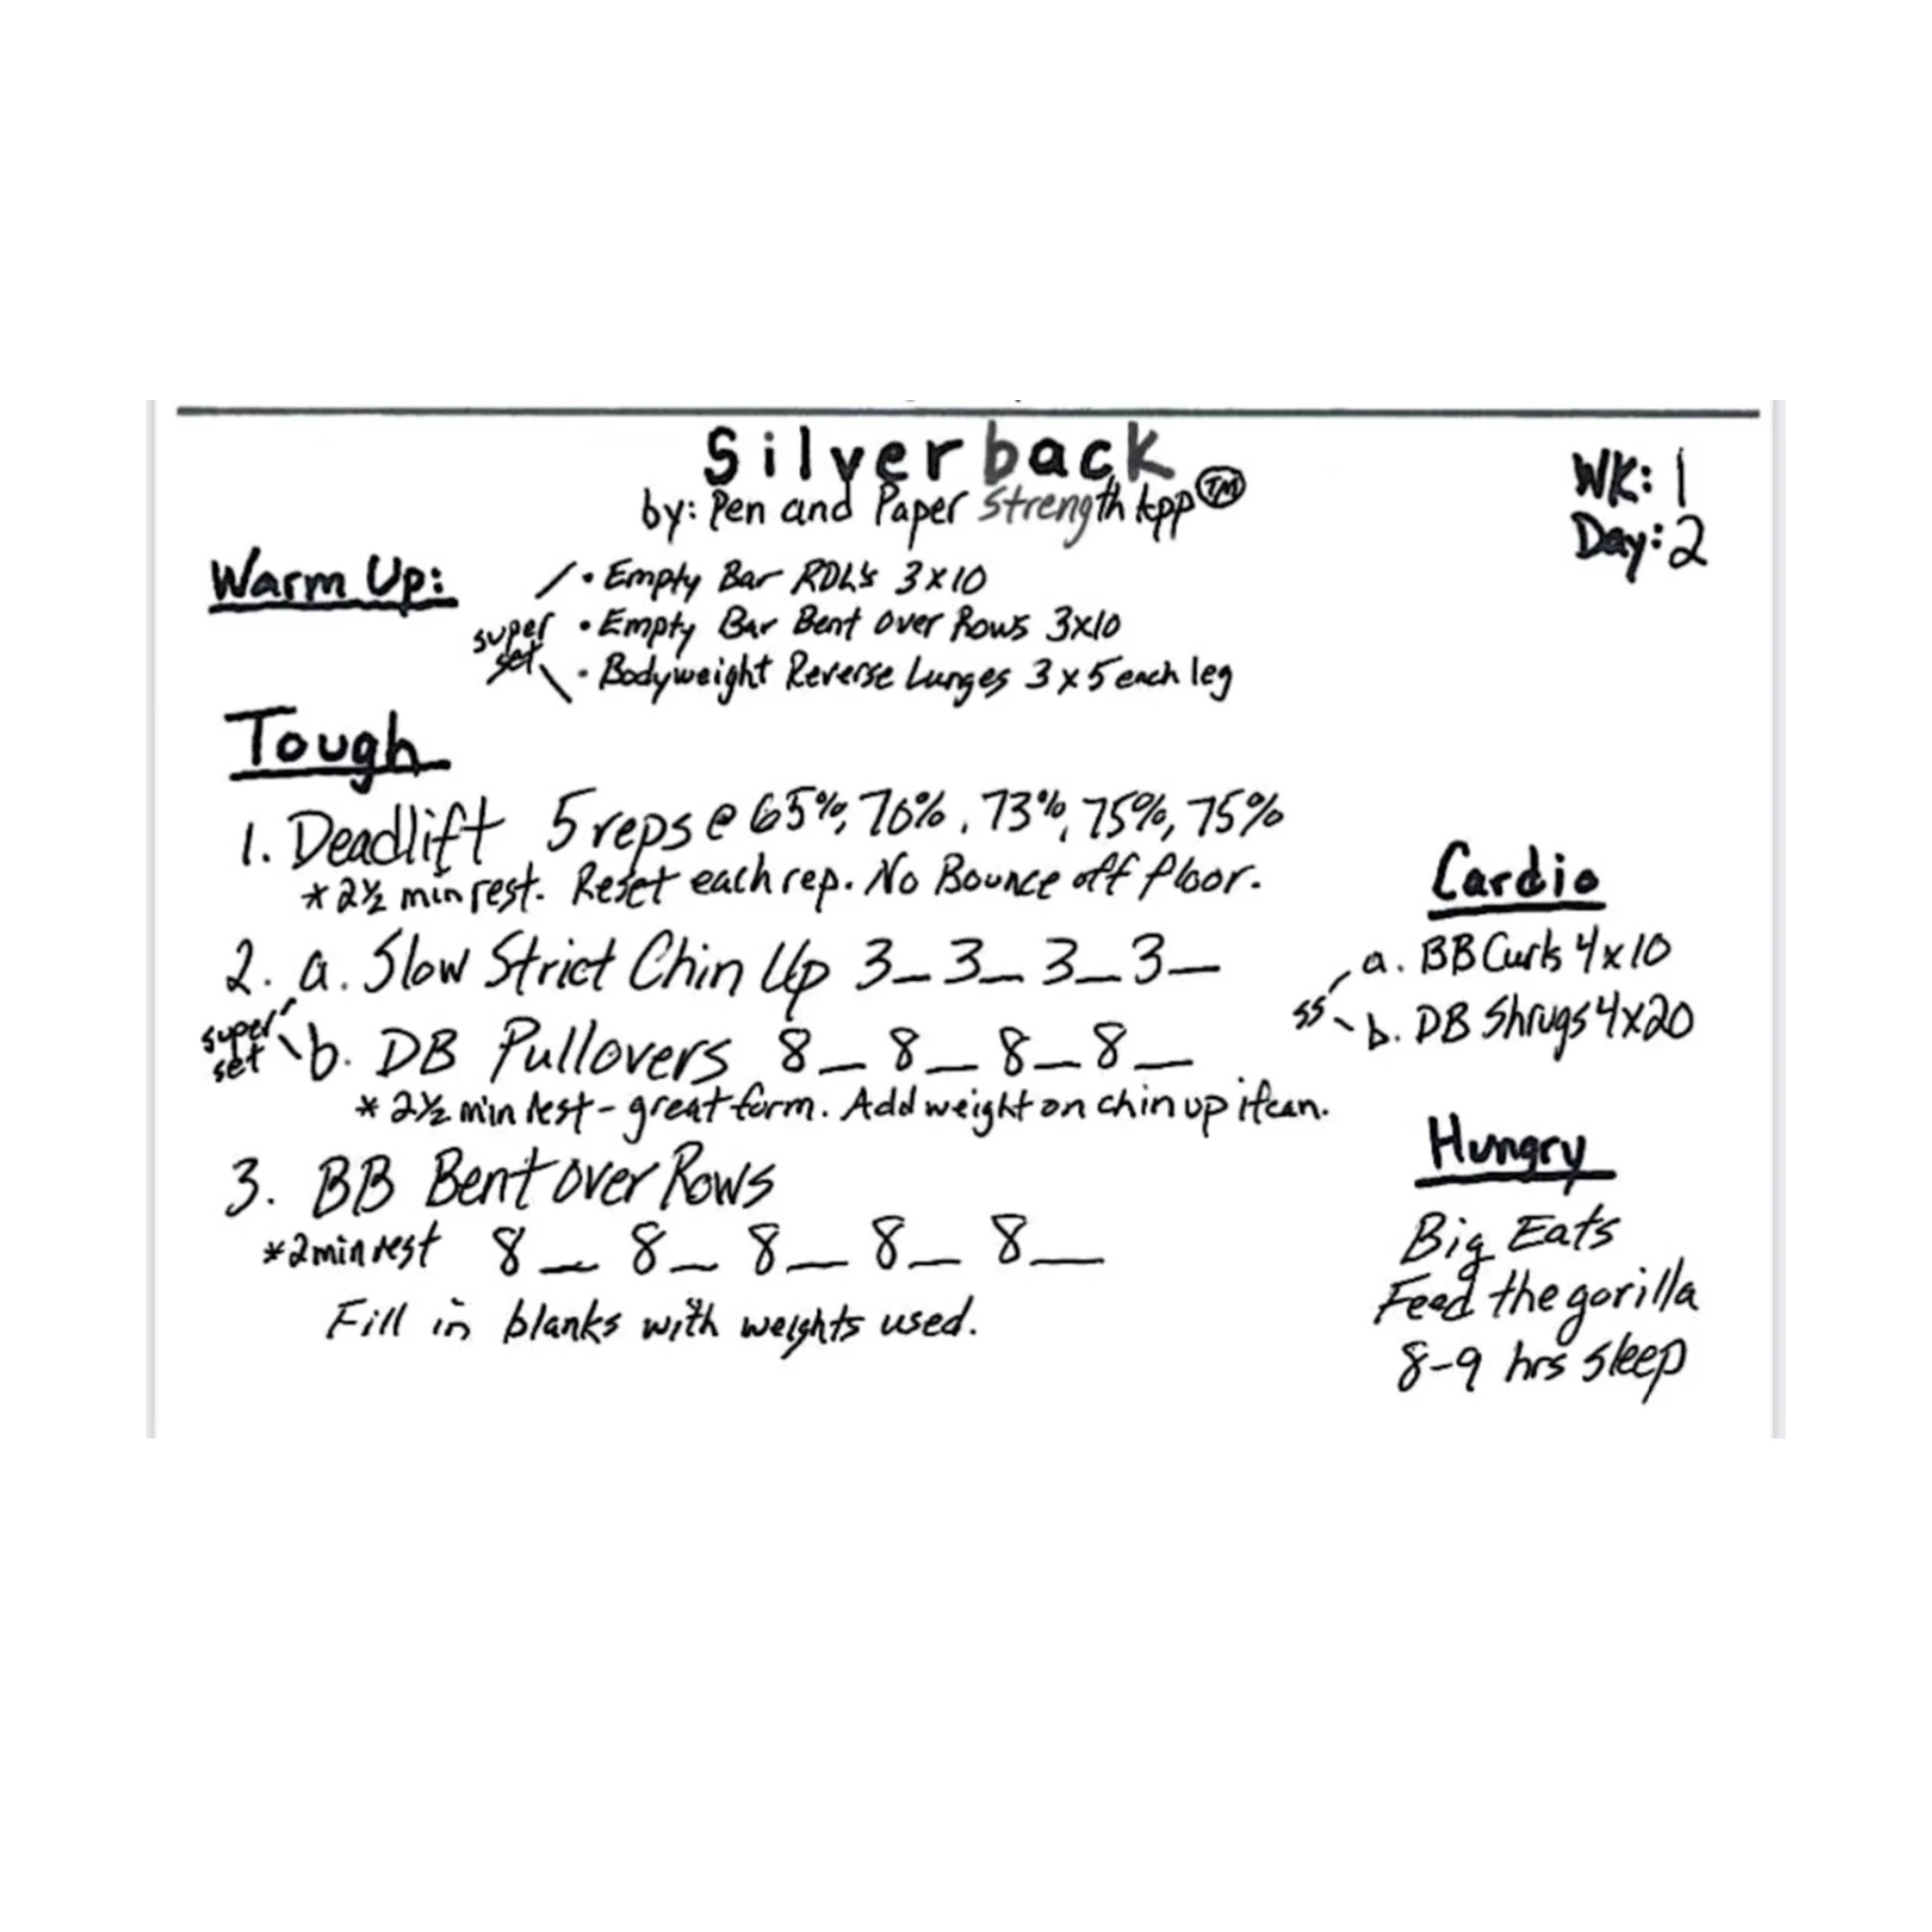 Silverback
by: Pen and Paper Strength App TM
WK: 1
Day: 2
Warm Up:
• Empty Bar RDL's 3x10
super set
• Empty Bar Bent Over Rows 3x10
• Bodyweight Reverse Lunges 3x5 each leg
Tough
1. Deadlift 5 reps @ 65%, 70%, 73%, 75%, 75%
* 2½ min rest. Reset each rep. No Bounce off floor.
2. a. Slow Strict Chin Up 3_ 3_ 3_ 3_
super set
b. DB Pullovers 8_ 8_ 8_ 8_
* 2½ min rest - great form. Add weight on chin up if can.
3. BB Bent over Rows
* 2 min rest 8_ 8_ 8_ 8_ 8_
Fill in blanks with weights used.
Cardio
a. BB Curls 4x10
ss
b. DB Shrugs 4x20
Hungry
Big Eats
Feed the gorilla
8-9 hrs sleep